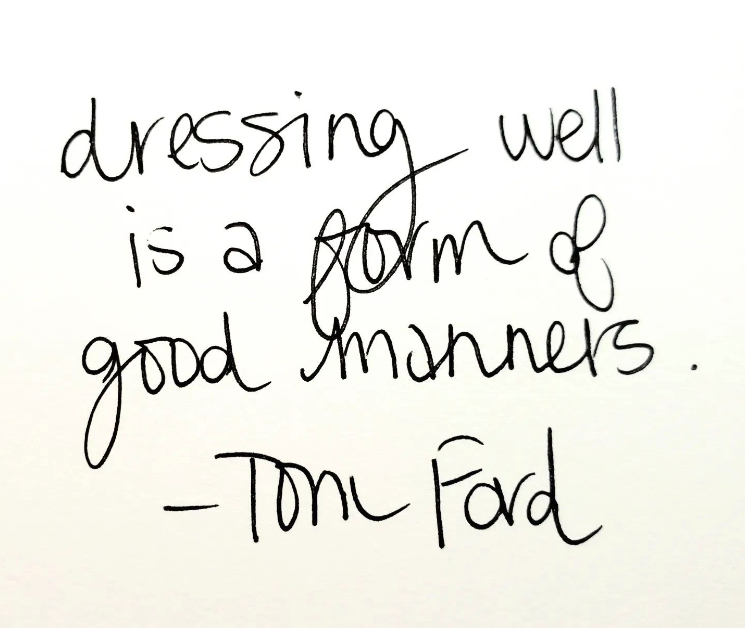 dressing well
is a form of
good manners.
- Tom Ford